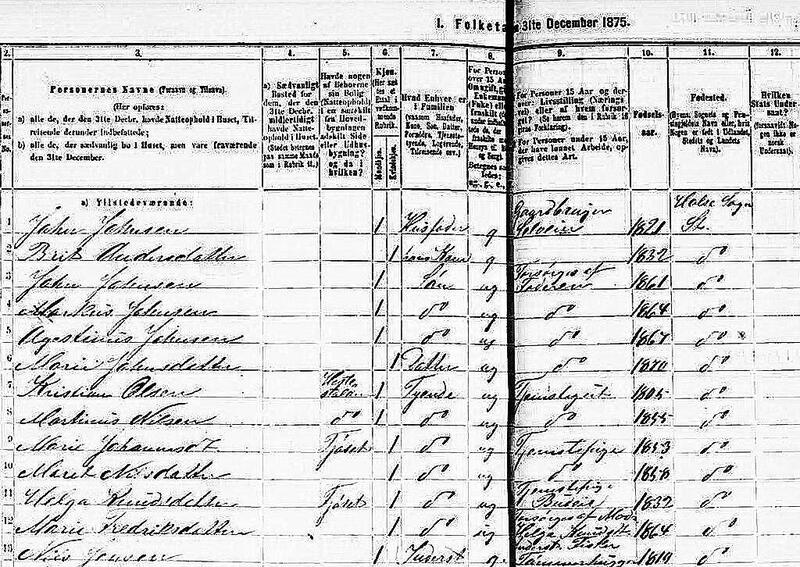 I. Folketa 31te December 1875.
2. 3. 4. 5. 6. 7. 8. 9. 10. 11. 12.
Personernes Navne (Fornavn og Tilnavn).
(Her opføres:
a) alle de, der den 31te Decbr. havde Natteophold i Huset, Tilreisende derunder indbefattede;
b) alle de, der sædvanlig bo i Huset, men vare fraværende den 31te December.
a) Sædvanligt Bosted for dem, der den 31te Decbr. midlertidigt havde Natteophold i Huset.
Havde nogen af Beboerne sin Bolig (Natteophold) i en særskilt fra Hovedbygningen
og da i hvilken?
Kjøn.
Mandkjøn.
Kvindekjøn.
Hvad Enhver er i Familien
(saasom Husfader, Kone, Søn, Datter, Forældre, Tjenestetyende, Logerende, Tilreisende osv.)
For Personer over 15 Aar
For Personer 15 Aar og derover: Livsstilling (Næringsvei) eller af hvem forsørget.
For Personer under 15 Aar, der have lønnet Arbeide, opgives dettes Art.
Fødselsaar.
Fødested.
Hvilken Stats Undersaat?
a) Tilstedeværende:
Holse Sogn
1 John Johnsen 1 Husfader g Gaardbruger Selveier 1821 St.
2 Brit Andersdatter 1 hans Kone g 1832 do
3 John Johnsen 1 Søn ug Forsørges af Faderen 1861 do
4 Markus Johnsen 1 do ug do 1864 do
5 Agestinus Johnsen 1 do ug do 1867 do
6 Marie Johnsdatter 1 Datter ug do 1870 do
7 Kristian Olsen 1 Tyende ug 1805 do
8 Martinus Nilsen do 1 do ug do 1855 do
9 Marie Johannesdt Fjøset 1 do ug Tjenestepige 1853 do
10 Maret Nilsdatter 1 do ug do 1858 do
11 Helga Knudsdatter Fjøset 1 do ug Tjenestepige Budeie 1832 do
12 Marie Fredriksdatter 1 do ug Forsørges af Mod. Helga Knudsdt 1864 do
13 Nils Jensen 1 Inderst g Inderst Fisker Tømmerhugger 1819 do